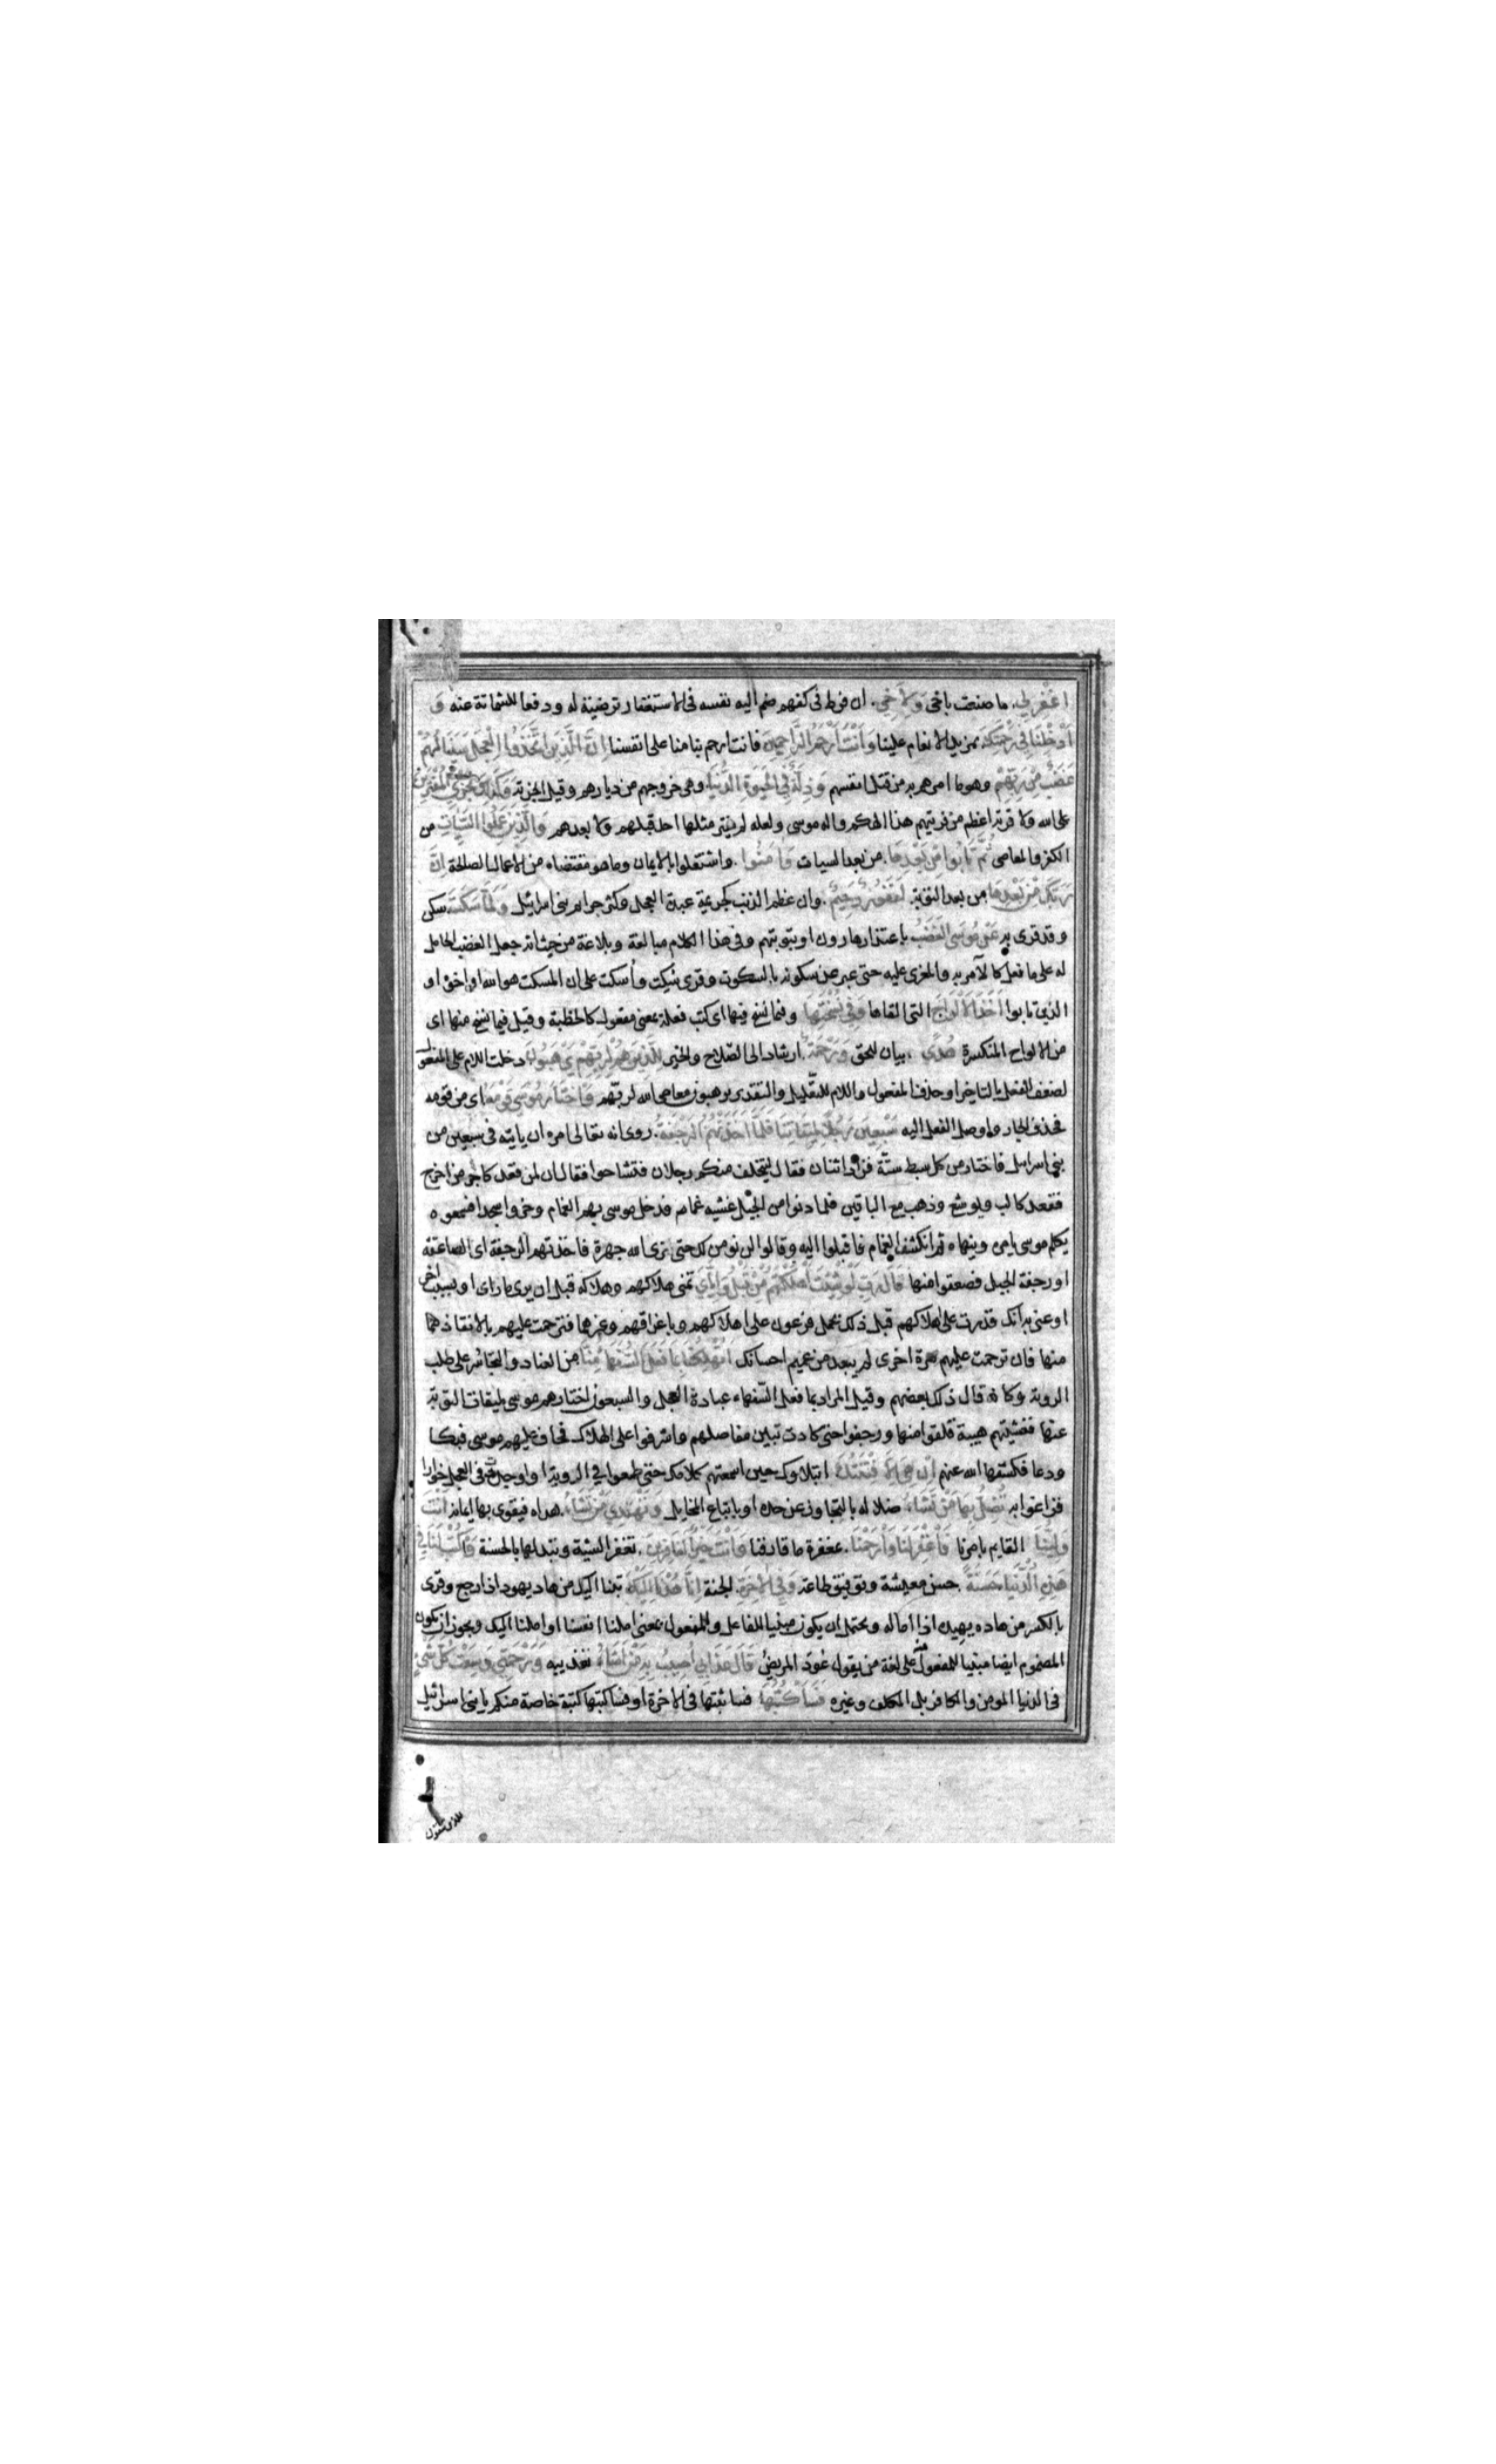 اغفر لي. ما صنعت باخى وَلِأَخِي. ان فرط فى كفهم ضم اليه نفسه فى الاستغفار ترضية له ودفعا للشماتة عنه وَ
أَدْخِلْنَا فِي رَحْمَتِكَ بمزيد الانعام علينا وَأَنْتَ أَرْحَمُ الرَّاحِمِينَ فانت ارحم بنا منا على انفسنا إِنَّ الَّذِينَ اتَّخَذُوا الْعِجْلَ سَيَنَالُهُمْ
غَضَبٌ مِنْ رَبِّهِمْ وهو ما امرهم به من قتل انفسهم وَذِلَّةٌ فِي الْحَيَوةِ الدُّنْيَا وهى خروجهم من ديارهم وقيل الجزية وَكَذَلِكَ نَجْزِي الْمُفْتَرِينَ
على الله ولا فرية اعظم من فريتهم هذا الهكم واله موسى ولعله لم يفتر مثلها احد قبلهم ولا بعدهم وَالَّذِينَ عَمِلُوا السَّيِّئَاتِ من
الكفر والمعاصى ثُمَّ تَابُوا مِنْ بَعْدِهَا. من بعد السيات وَآمَنُوا. واشتغلوا بالايمان وما هو مقتضاه من الاعمال الصالحة إِنَّ
رَبَّكَ مِنْ بَعْدِهَا من بعد التوبة لَغَفُورٌ رَحِيمٌ. وان عظم الذنب كجريمة عبدة العجل وكثر جرايم بنى اسرائيل وَلَمَّا سَكَتَ سكن
وقد قرى به عَنْ مُوسَى الْغَضَبُ باعتذار هارون او بتوبتهم وفى هذا الكلام مبالغة وبلاغة من حيث انه جعل الغضب الحامل
له على ما فعل كالآمر به والمغرى عليه حتى عبر عن سكونه بالسكوت وقرى سُكِت وأُسكت على ان المسكت هو الله او اخوه او
الذين تابوا أَخَذَ الْأَلْوَاحَ التى القاها وَفِي نُسْخَتِهَا وفيما نسخ فيها اى كتب فعلة بمعنى مفعول كالخطبة وقيل فيما نسخ منها اى
من الالواح المنكسرة هُدًى. بيان للحق وَرَحْمَةٌ. ارشاد الى الصلاح والخير لِلَّذِينَ هُمْ لِرَبِّهِمْ يَرْهَبُونَ. دخلت اللام على المفعول
لضعف الفعل بالتاخير او حذف المفعول واللام للتعليل والتقدير يرهبون معاصى الله لربهم وَاخْتَارَ مُوسَى قَوْمَهُ اى من قومه
فحذف الجار واوصل الفعل اليه سَبْعِينَ رَجُلًا لِمِيقَاتِنَا فَلَمَّا أَخَذَتْهُمُ الرَّجْفَةُ. روى انه تعالى امره ان ياتيه فى سبعين من
بنى اسرايل فاختار من كل سبط ستة فزاد اثنان فقال ليتخلف منكم رجلان فتشاحوا فقال ان لمن قعد كاجر من اخرج
فقعد كالب ويوشع وذهب مع الباقين فلما دنوا من الجبل غشيه غمام فدخل موسى بهم الغمام وخروا سجدا فسمعوه
يكلم موسى يامره وينهاه ثم انكشف الغمام فاقبلوا اليه وقالوا لن نومن لك حتى نرى الله جهرة فاخذتهم الرجفة اى الصاعقة
او رجفة الجبل فصعقوا منها قَالَ رَبِّ لَوْ شِئْتَ أَهْلَكْتَهُمْ مِنْ قَبْلُ وَإِيَّايَ تمنى هلاكهم وهلاكه قبل ان يرى ما راى او بسبب اخر
او عنى به انك قدرت على اهلاكهم قبل ذلك بحمل فرعون على اهلاكهم وباغراقهم وغيرهما فترحمت عليهم بالانقاذ
منها فان ترحمت عليهم مرة اخرى لم يبعد من عميم احسانك أَتُهْلِكُنَا بِمَا فَعَلَ السُّفَهَاءُ مِنَّا من العناد والتجاسر على طلب
الروية وكان قال ذلك بعضهم وقيل المراد بما فعل السفهاء عبادة العجل والسبعون اختارهم موسى لميقات التوبة
عنها فغشيتهم هيبة قلقوا منها ورجفوا حتى كادت تبين مفاصلهم واشرفوا على الهلاك فخاف عليهم موسى فبكا
ودعا فكشفها الله عنهم إِنْ هِيَ إِلَّا فِتْنَتُكَ ابتلاوك حين اسمعتهم كلامك حتى طمعوا فى الروية او اوجدت فى العجل خوارا
فزاغوا به تُضِلُّ بِهَا مَنْ تَشَاءُ. ضلاله بالتجاوز عن حده او باتباع المخايل وَتَهْدِي مَنْ تَشَاءُ. هداه فيقوى بها ايمانه أَنْتَ
وَلِيُّنَا القايم بامرنا فَاغْفِرْ لَنَا وَارْحَمْنَا. بمغفرة ما قارفنا وَأَنْتَ خَيْرُ الْغَافِرِينَ. تغفر السيئة وتبدلها بالحسنة وَاكْتُبْ لَنَا فِي
هَذِهِ الدُّنْيَا حَسَنَةً. حسن معيشة وتوفيق طاعة وَفِي الْآخِرَةِ. الجنة إِنَّا هُدْنَا إِلَيْكَ تبنا اليك من هاد يهود اذا رجع وقرى
بالكسر من هاده يهيده اذا اماله ويحتمل ان يكون مبنيا للفاعل وللمفعول بمعنى املنا انفسنا او املنا اليك ويجوز ان يكون
المضموم ايضا مبنيا للمفعول منه على لغة من يقول عُودَ المريضُ قَالَ عَذَابِي أُصِيبُ بِهِ مَنْ أَشَاءُ تعذيبه وَرَحْمَتِي وَسِعَتْ كُلَّ شَيْءٍ
فى الدنيا المومن والكافر بل المكلف وغيره فَسَأَكْتُبُهَا فساثبتها فى الاخرة او فساكتبها كتبة خاصة منكم يا بنى اسرائيل
للذين يتقون